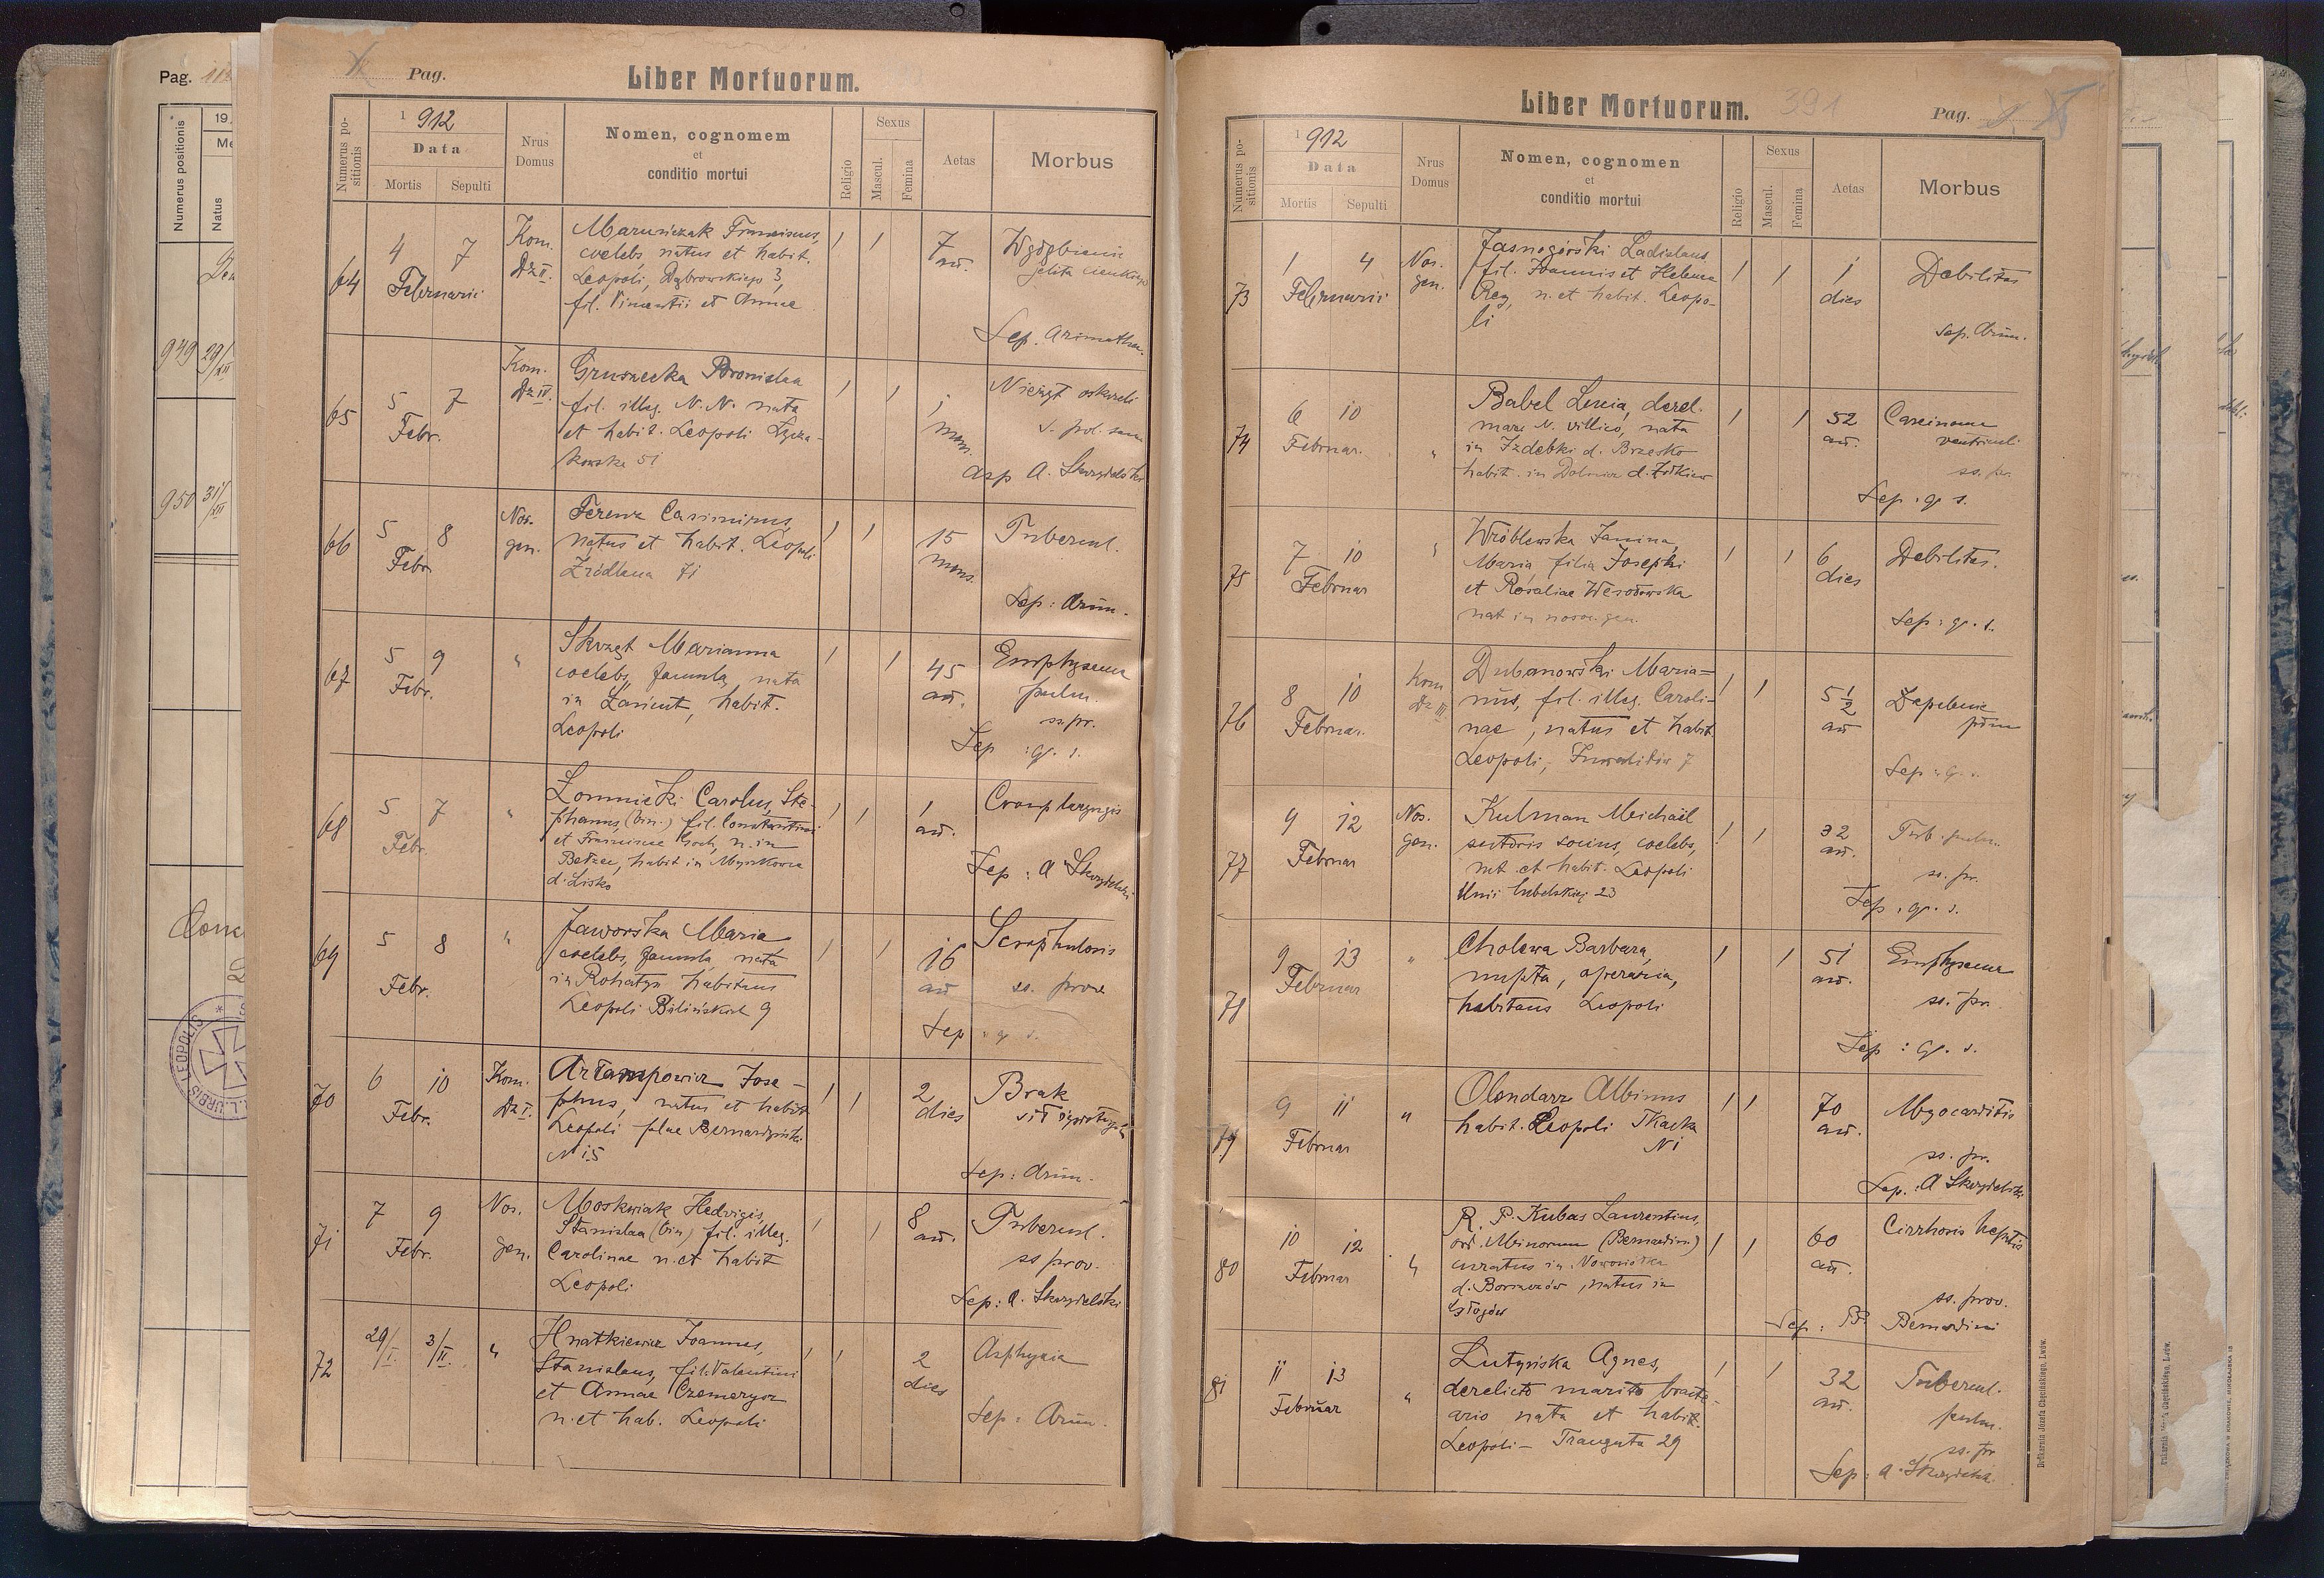 Pag.
Liber Mortuorum.
Numerus positionis
1912
Data
Mortis
Sepulti
Nrus Domus
Nomen, cognomem
et
conditio mortui
Religio
Sexus
Mascul.
Femina
Aetas
Morbus
64
4 7
Februarii
Kom.
Dz II.
Franciscus,
coelebs, natus et habit.
Leopoli, Dąbrowskiego 3,
fil. Vincentii et Annae
7
an.
Sep. Arimathea.
65
5 7
Febr.
Kom.
Dz IV.
Gruszecka Bronislaa
fil. illeg. N. N. nata
et habit. Leopoli Łycza-
kowska 51
1
mens.
Nieżyt oskrzeli
asp A. Skrzydelski
66
5 8
Febr.
Nos.
gen.
Ferenz Casimirus,
natus et habit. Leopoli
Źródlana 71
15
mens.
Tubercul.
Sep: Arim.
67
5 9
Febr.
"
Skrzęt Marianna
coelebs, famula, nata
in Łańcut, habit.
Leopoli
45
an.
Emphysema
pulm.
ss. pr.
Sep : g. s.
68
5 7
Febr.
"
Łomnicki Carolus, Ste-
phanus, (bin.) fil. Constantini
et Franciscae Groch, n. in
Bełzec, habit in Myczkowce
d. Lisko
1
an.
Croup laryngis
Sep : A Skrzydelski
69
5 8
Febr.
"
Jaworska Maria
coelebs, famula, nata
in Rohatyn habitans
Leopoli Bilińskich 9
16
an
Scrophulosis
ss. prov
Sep : g s.
70
6 10
Febr.
Kom.
Dz I.
Artampowicz Jose-
phus, natus et habit
Leopoli plac Bernardyński
N 15
2
dies
Brak
sił żywotnych
Sep: Arim.
71
7 9
Febr.
Nos.
gen.
Moskwiak Hedvigis,
Stanislaa (bin) fil. illeg.
Carolinae n. et habit
Leopoli
8
an.
Tubercul.
ss prov.
Sep: A. Skrzydelski
72
29/I. 3/II.
"
Hnatkiewicz Joannes,
Stanislaus, fil. Valentini
et Annae Czemeryca
n. et hab. Leopoli
2
dies
Asphyxia
Sep: Arim.
Liber Mortuorum. 391
Pag.
Numerus positionis
1912
Data
Mortis
Sepulti
Nrus Domus
Nomen, cognomen
et
conditio mortui
Religio
Sexus
Mascul.
Femina
Aetas
Morbus
73
1 4
Februarii
Nos.
gen.
Jasnogórski Ladislaus
fil. Joannis et Helenae
Reg, n. et habit. Leopo-
li
1
dies
Debilitas
Sep. Arim.
74
6 10
Februar.
"
Babel Lucia, derel.
mar. N. villico, nata
in Izdebki d. Brzesko
habit. in d. Żółkiew
52
an.
Carcinoma
ventriculi
ss. pr.
Sep : g. s.
75
7 10
Februar
"
Wróblewska Janina,
Maria, filia Josephi
et Rosaliae Wesołowska
nat in nosoc. gen.
6
dies
Debilitas.
Sep : g. s.
76
8 10
Februar.
Kom
Dz III
Dubanowski Maria-
nus, fil. illeg. Caroli-
nae, natus et habit.
Leopoli, Inwalidów 7
5 1/2
an
Zapalenie
płuc
Sep : g. s.
77
9 12
Februar
Nos.
gen.
Kulman Michaël
sutoris socius, coelebs,
nat. et habit. Leopoli
Unii lubelskiej 23
32
an.
Tub. pulm.
ss. pr.
Sep : g. s.
78
9 13
Februar
"
Cholewa Barbara,
nupta, operaria,
habitans Leopoli
51
an.
Emphysema
ss. pr.
Sep : g. s.
79
9 11
Februar
"
Olendarz Albinus
habit. Leopoli Tkacka
N1
70
an.
Myocarditis
ss. pr.
Sep. : A Skrzydelski
80
10 12
Februar
"
R. P. Kubas Laurentius,
ord. Minorum (Bernardin.)
curatus in Nowosiółka
d. Borszczów, natus in
Głogów
60
an.
Cirrhosis hepatis
ss. prov.
Sep : PP. Bernardini
81
11 13
Februar
"
Lutyńska Agnes,
derelicto marito bracte-
ario nata et habit.
Leopoli - Trauguta 29
32
an.
Tubercul.
pulm.
ss. pr
Sep : A. Skrzydelski
Drukarnia Józefa Chęcińskiego, Lwów.
Pag.
Numerus positionis
Natus
949
29/XII
950
31/XII